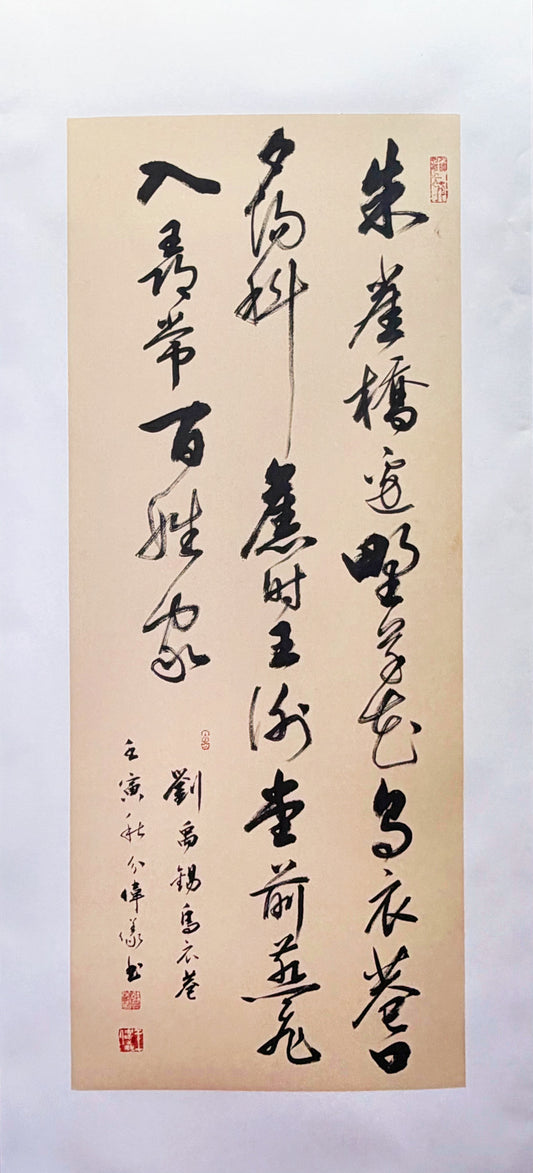 朱雀橋邊野草花烏衣巷口
夕陽斜舊时王謝堂前燕飛
入尋常百姓家
劉禹錫烏衣巷
壬寅秋分偉書